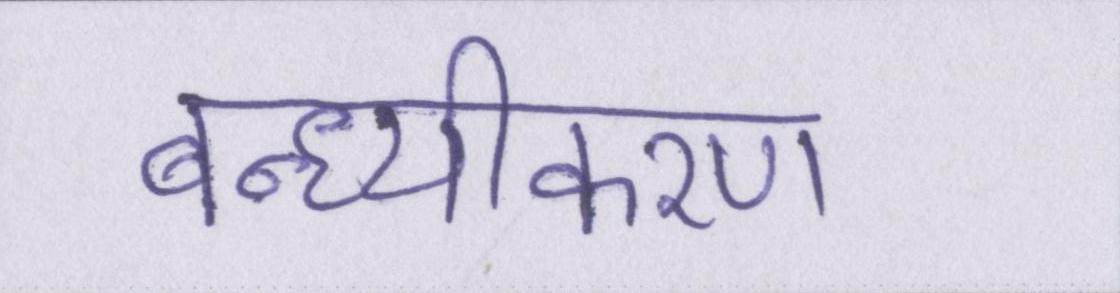 बन्ध्यीकरण